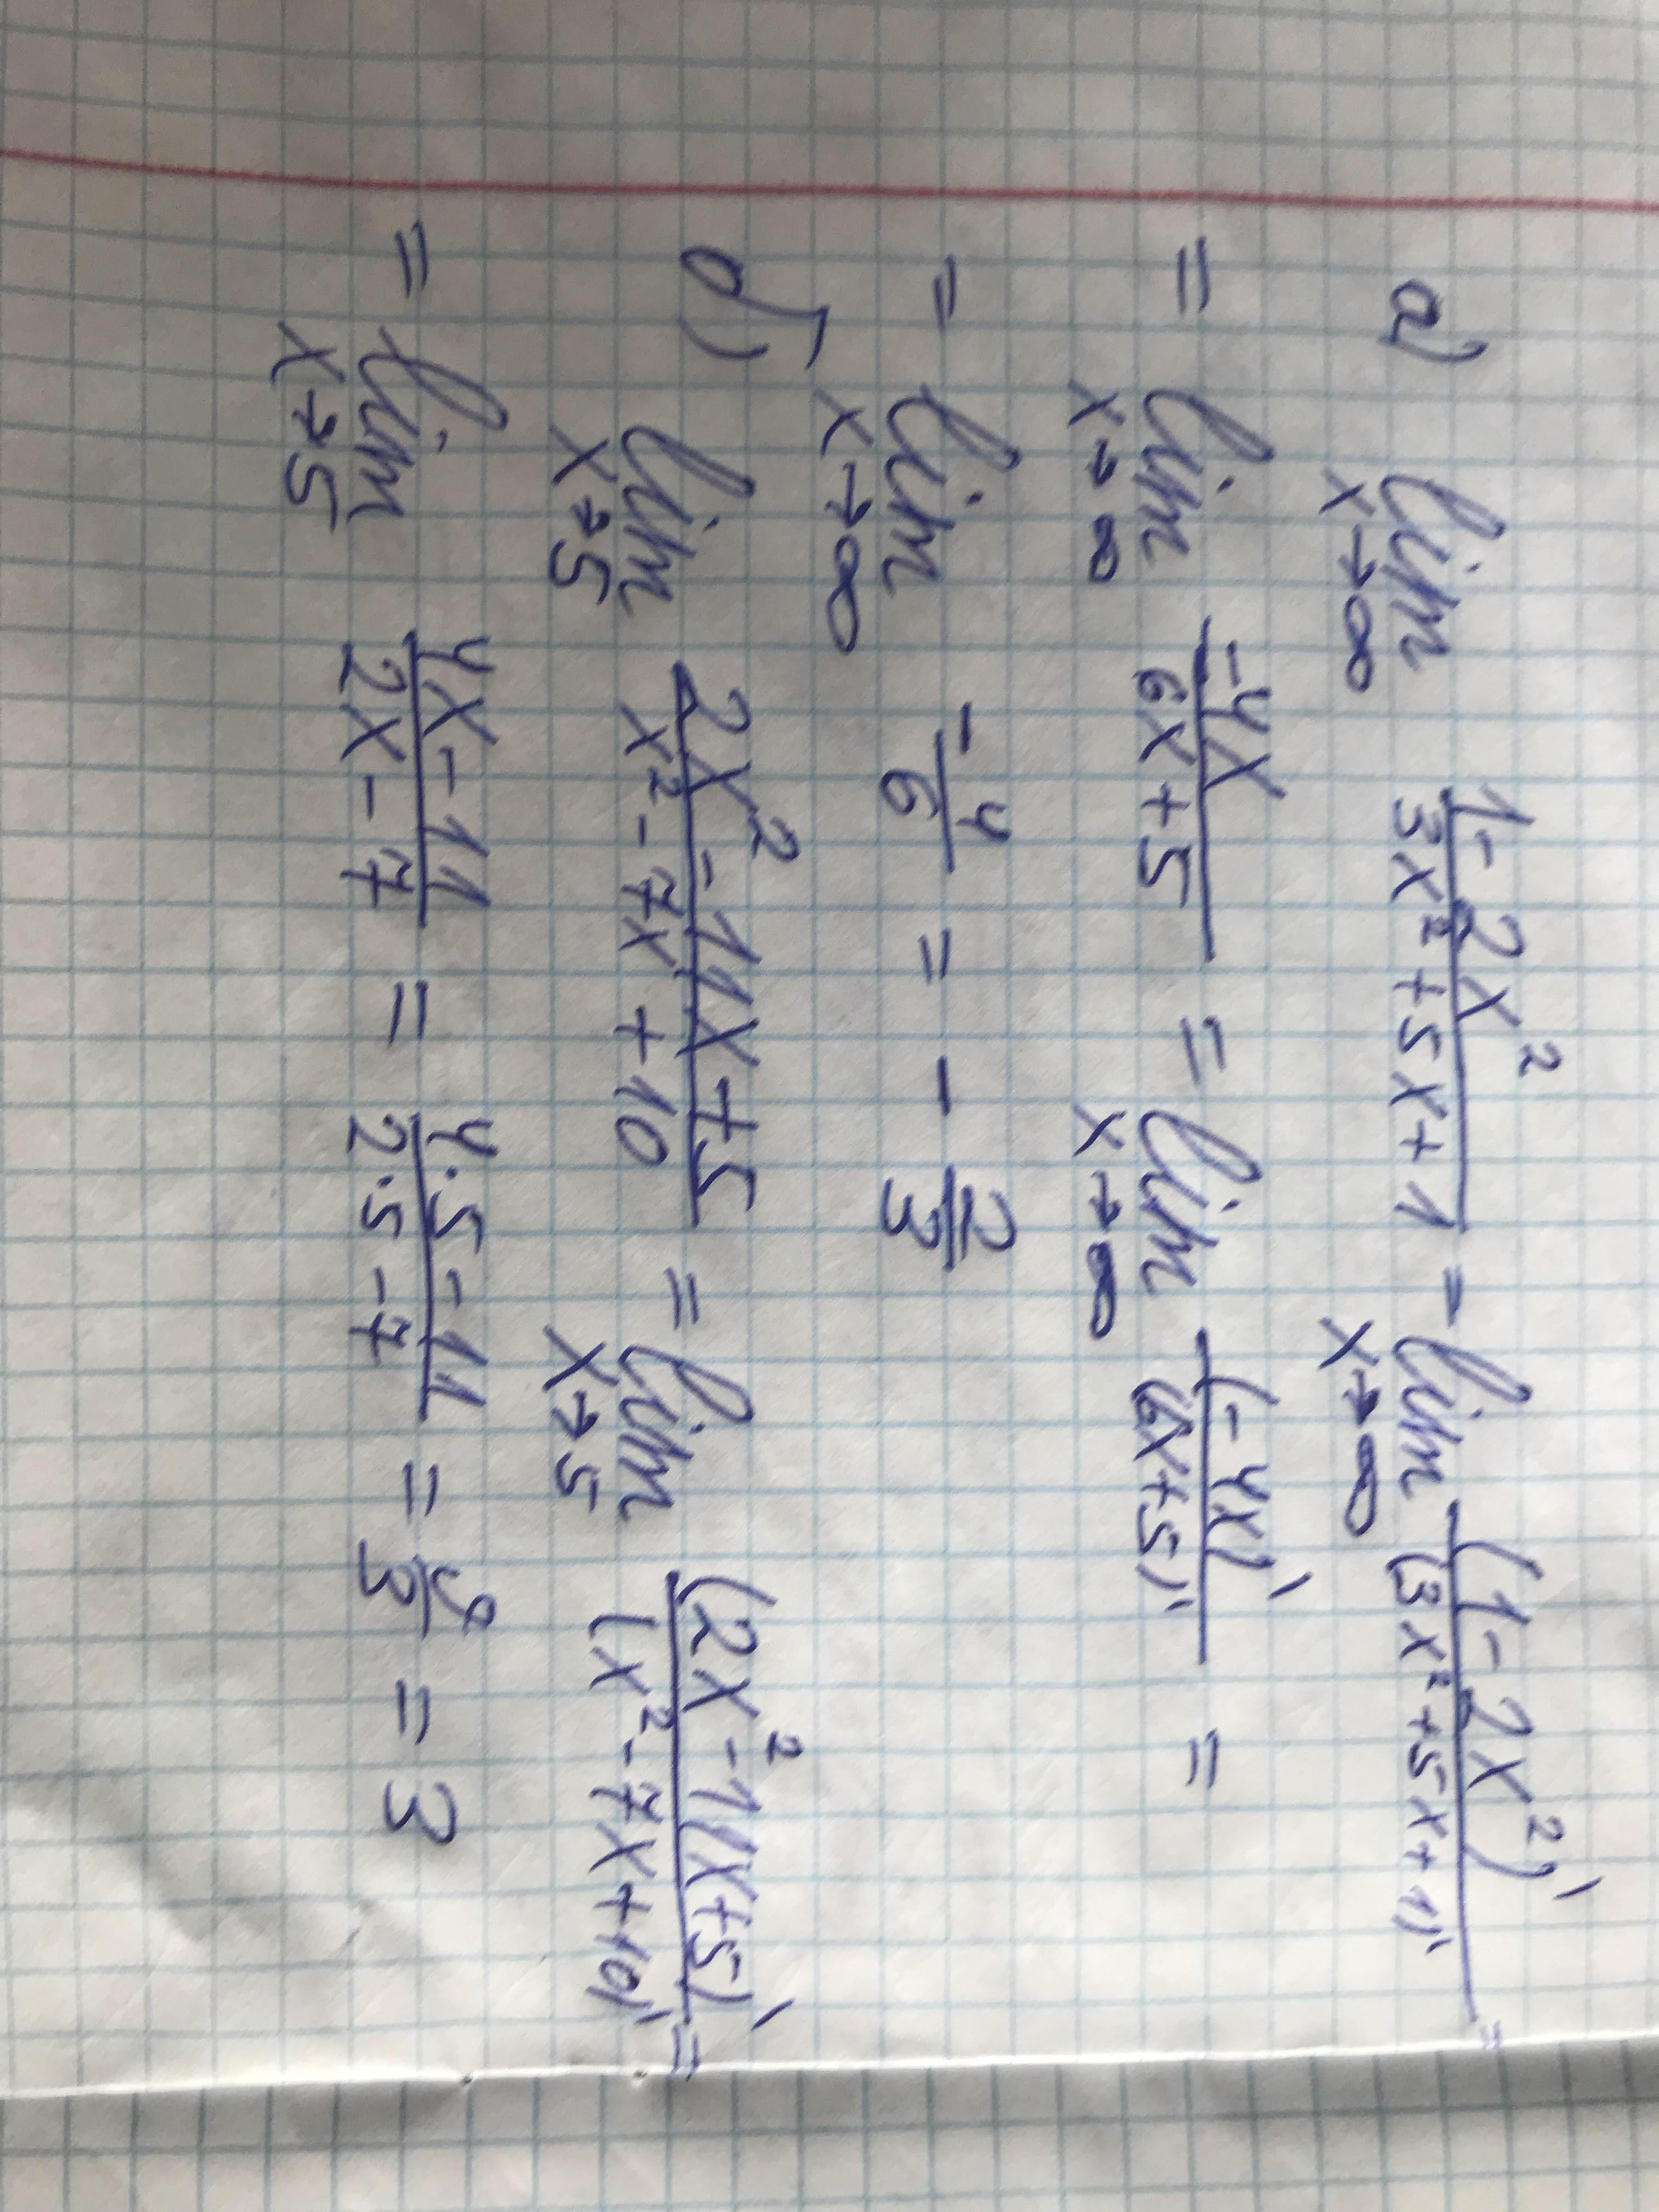 а) lim x→∞ (1-2x²)/(3x²+5x+1) = lim x→∞ (1-2x²)'/(3x²+5x+1)' =
= lim x→∞ (-4x)/(6x+5) = lim x→∞ (-4x)'/(6x+5)' =
= lim x→∞ -4/6 = -2/3
б) lim x→5 (2x²-11x+5)/(x²-7x+10) = lim x→5 (2x²-11x+5)'/(x²-7x+10)' =
= lim x→5 (4x-11)/(2x-7) = (4·5-11)/(2·5-7) = 9/3 = 3